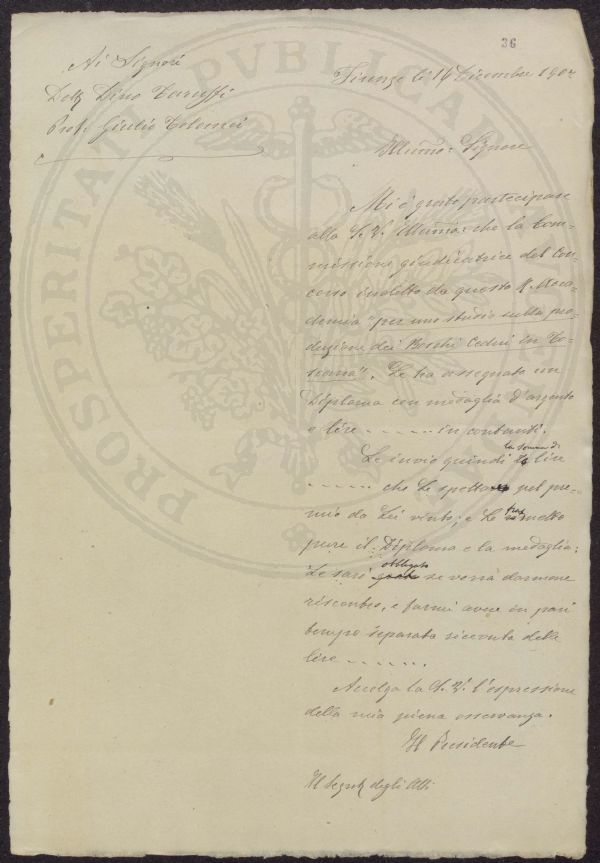 36
Ai Signori
Dott Dino Taruffi
Prof. Giulio Tolomei
Firenze li 14 Dicembre 190
Illmo: Signore
Mi è grato partecipare
alla S. V. Illma: che la Com-
missione giudicatrice del Con-
corso indetto da questa R. Acca-
demia "per uno studio sulla pro-
duzione dei Boschi Cedui in To-
scana", Le ha assegnato un
Diploma con medaglia d'argento
e lire - - - - - - in contanti.
Le invio quindi la somma di lire
- - - - - che Le spetta pel pre-
mio da Lei vinto; e Le trasmetto
pure il Diploma e la medaglia;
Le sarò obbligato se vorrà darmene
riscontro, e farmi avere in pari
tempo separata ricevuta delle
lire - - - - - - .
Accolga la S. V. l'espressione
della mia piena osservanza.
Il Presidente
Il Segret degli Atti
PROSPERITATI PVBLICAE